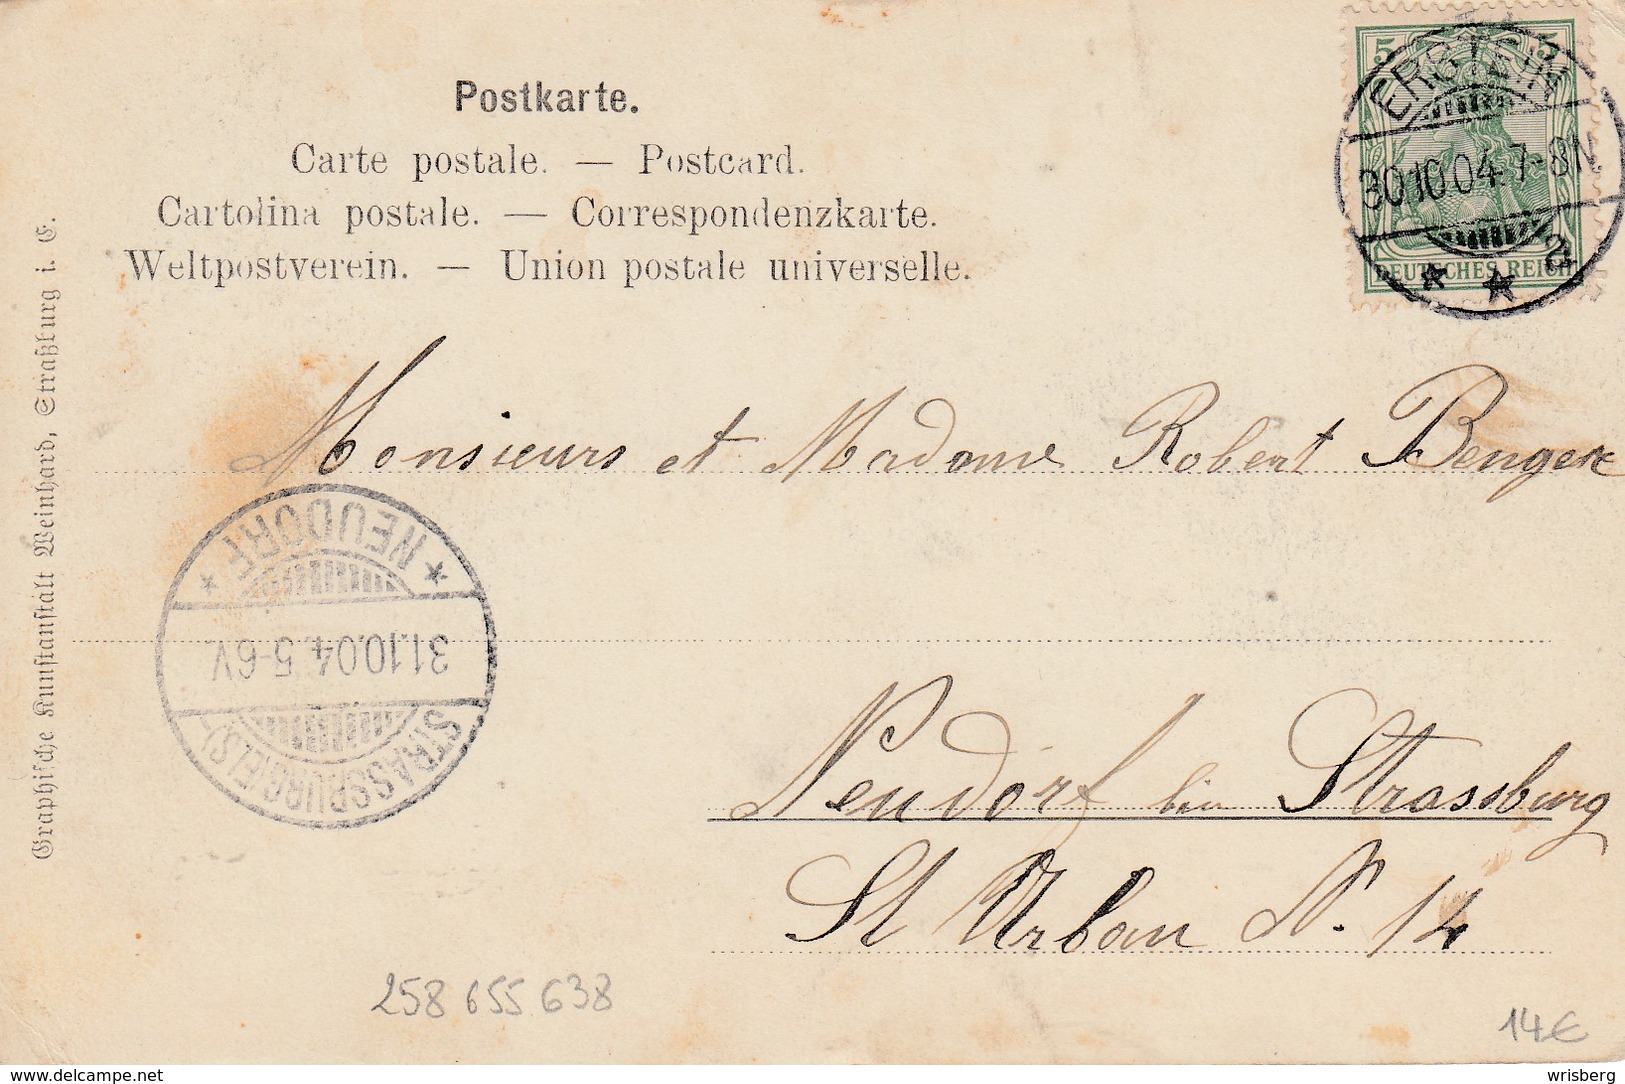 Postkarte.
Carte postale. — Postcard.
Cartolina postale. — Correspondenzkarte.
Weltpostverein. — Union postale universelle.
5 5
DEUTSCHES REICH
ERSTEIN
30.10.04.7-8N.
* * a
Graphische Kunstanstalt Weinhard, Straßburg i. E.
Monsieurs et Madame Robert Benger
* NEUDORF *
31.10.04.5-6V.
STRASSBURG (ELS)
Neudorf bei Strassburg
St Urban N. 14
258 655 638
14€
www.delcampe.net
wrisberg